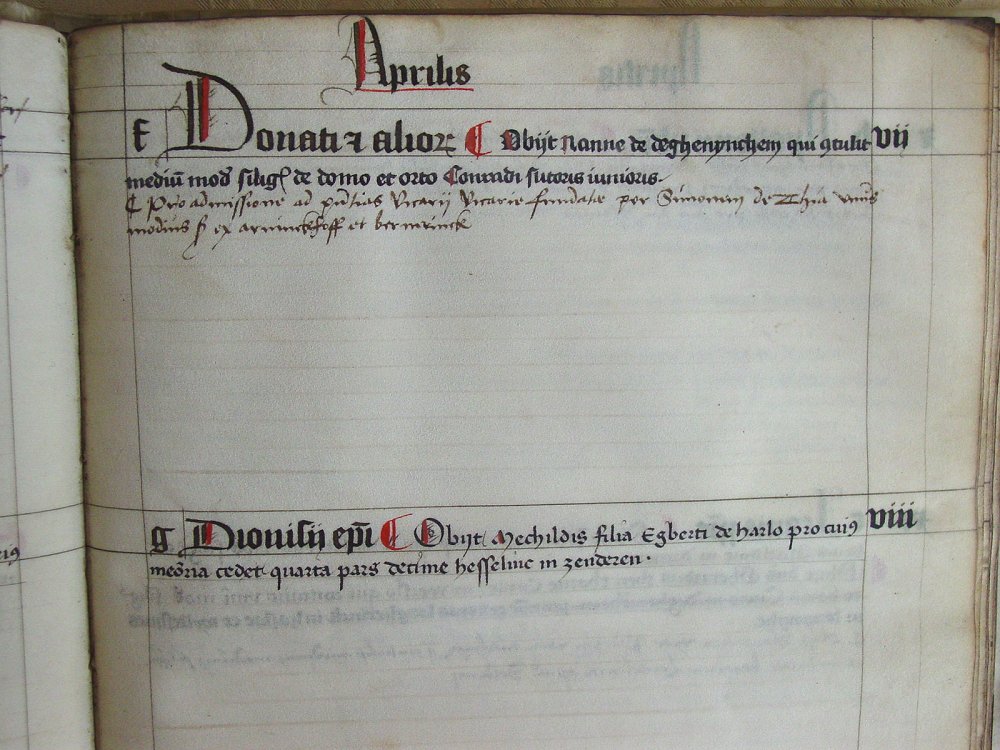 Aprilis
f Donati ⁊ alioꝝ ¶ Obijt Nanne de deghenynchem qui ꝯtulit vij
mediū mod' silig' de domo et orto Conradi sutoris iunioris.
¶ Pro admissione ad pn̄tias Vicarij Vicarie fundatæ per Simonem de Thia vnus
modius ex et
g Dionisij ep̄i ¶ Obijt Mechildis filia Egberti de harlo pro cuiꝰ viij
meōria cedet quarta pars decime hesselinc in zenderen.